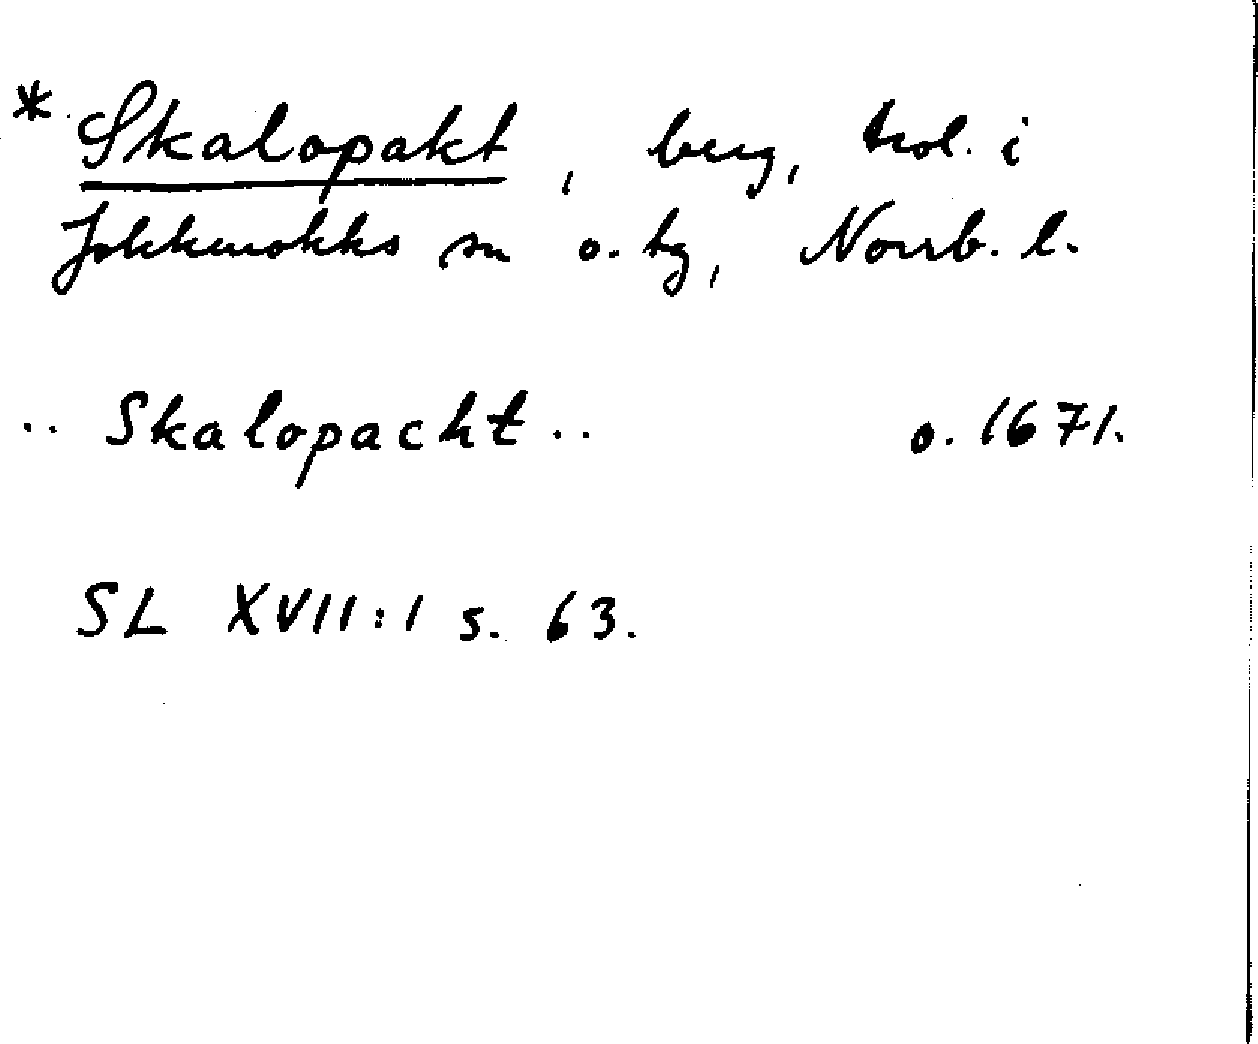 * Skalopakt, berg, trol. i
Jokkmokks sn o. tg, Norrb. l.
.. Skalopacht .. o. 1671.
SL XVII:1 s. 63.